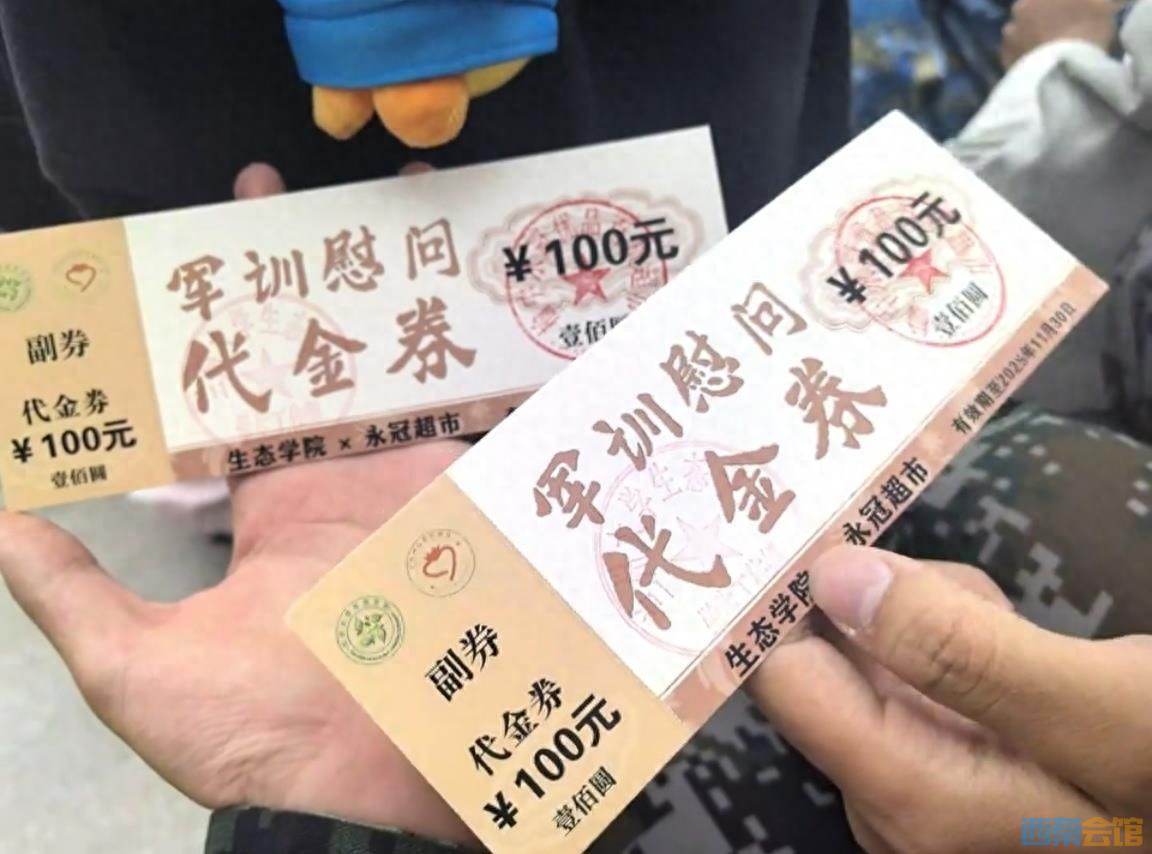 军训慰问
代金券
¥100元
壹佰
生态学院 × 永冠超市
副券
代金券
¥100元
壹佰圆
军训慰问
代金券
¥100元
壹佰圆
生态学院
永冠超市
有效期至2025年11月30日
副券
代金券
¥100元
壹佰圆
西菜会馆